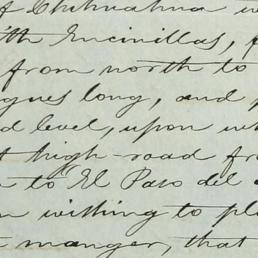 of Chihuahua
th Encinillas, f
from north to
gues long, and
d level, upon wh
t high-road fro
to El Paso del
n wishing to pl
manger, that